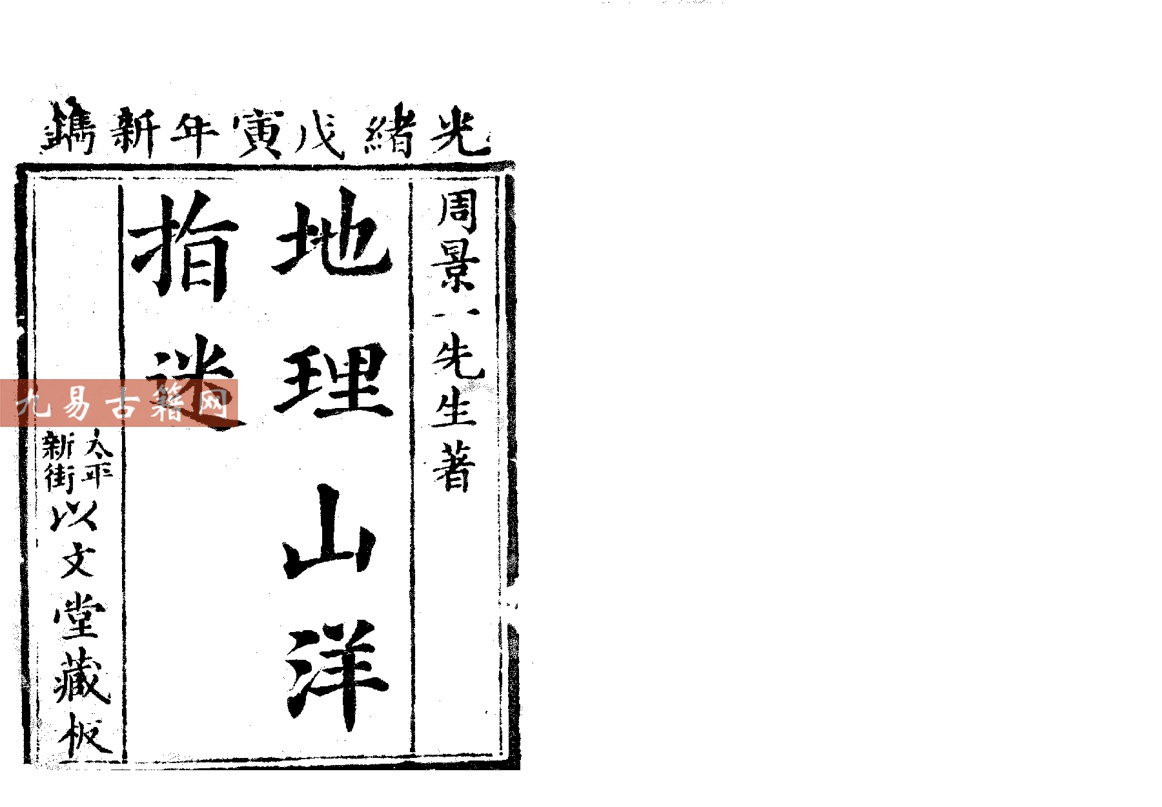 光緒戊寅年新鐫
周景一先生著
地理山洋
指迷
太平
新街
以文堂藏板
九易古籍网